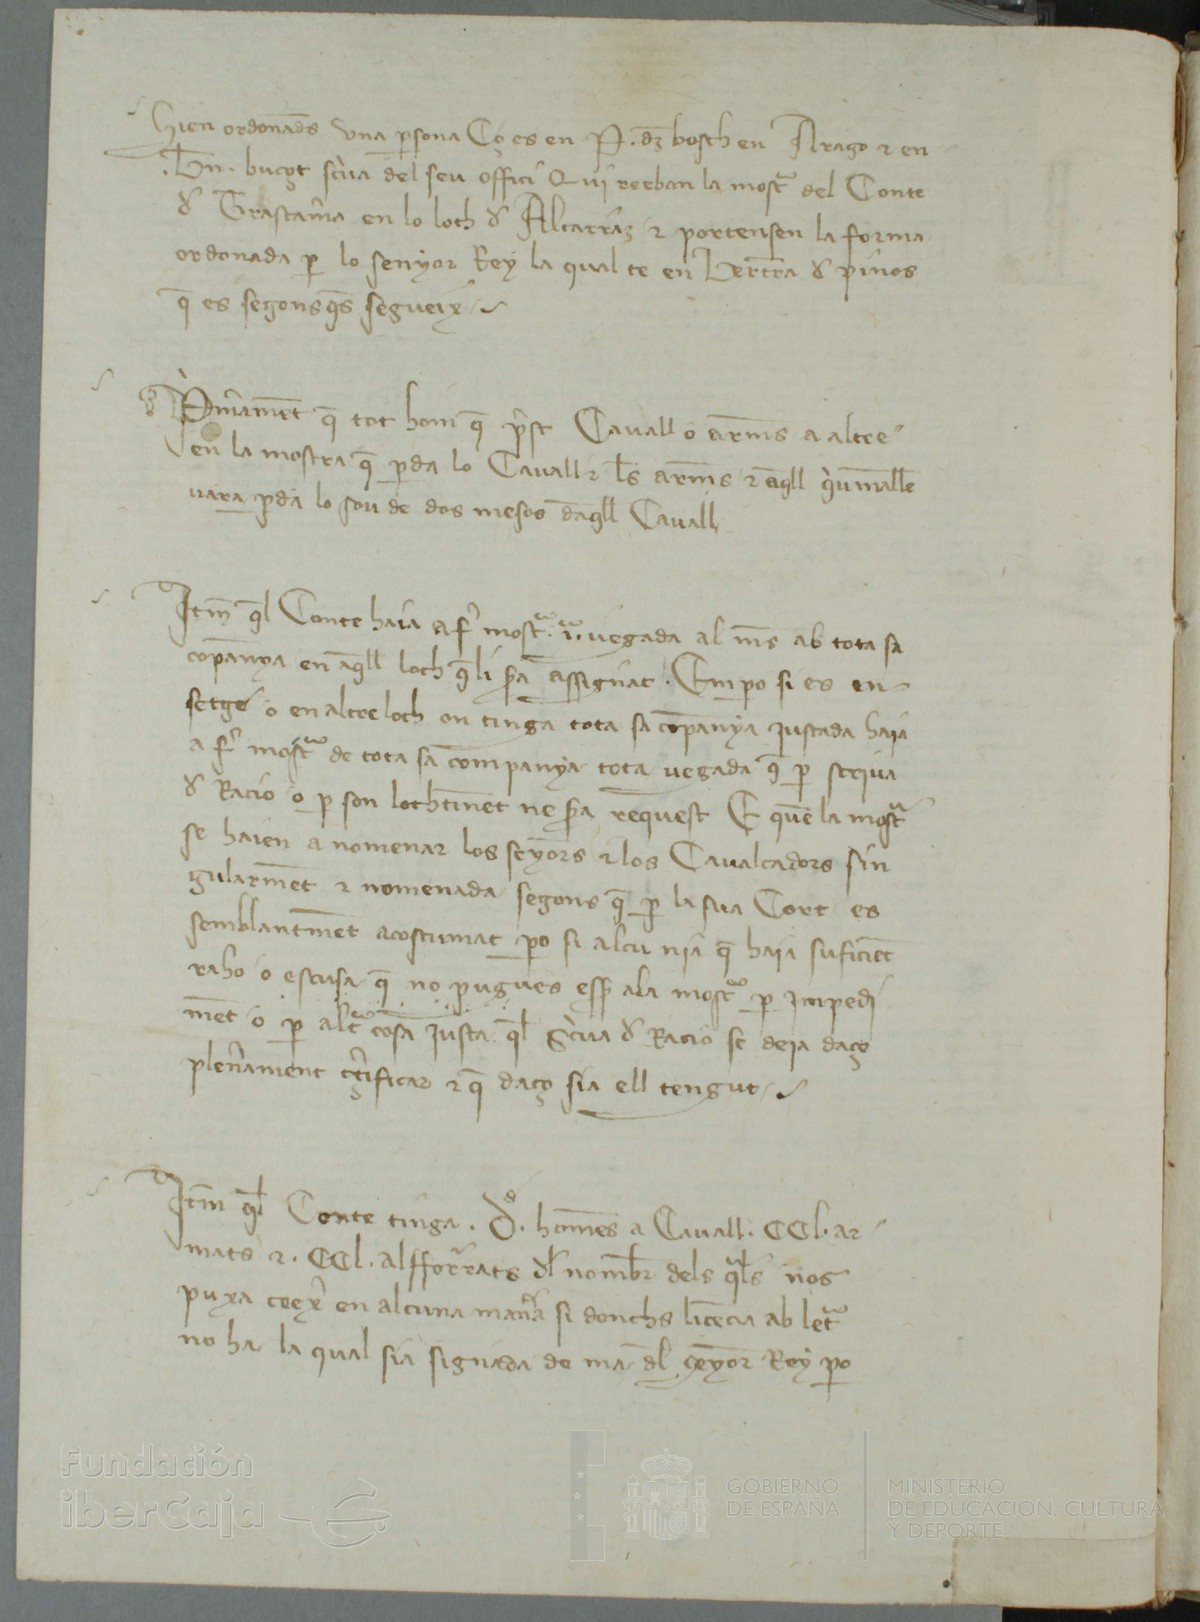 Sien ordonads una psona Ço es en P. dez bosch en Arago & en
.Bn. buçot scriva del seu offici Qui reeban la mostra del Conte
de Trastamra en lo loch de Alcarraz & portensen la forma
ordonada p lo senyor Rey la qual te en Bertra de pinos
q es segons qs segueix
Primament q tot hom q prest Cavall o arms a altre
en la mostra q pda lo Cavall & ls arms & aqll
vara pda lo sou de dos mesos daqll Cavall
Itm ql Conte haia a fer mostra .i.a vegada al mes ab tota sa
copanya en aqll loch qli sra assignat. Empo si es en
setge o en altre loch on tinga tota sa copanya justada haia
a fer mostra de tota sa companya tota vegada q p scriva
de Racio o p son lochtinent ne sra request E quen la mostra
se haien a nomenar los senyors & los Cavalcadors sin
gularment & nomenada segons q p la sua Cort es
semblantment acostumat po si alcu nia q haia suficient
raho o escusa q no pugues esser ala mostra p impedi
ment o p altra cosa justa ql scriva de Racio se deia daço
plenament certificar & q daço sia ell tengut
Itm ql Conte tinga .D. homens a Cavall .CCl. ar
mats & .CCl. alfforrats dl nombre dels quals nos
puxa crexer en alcuna manera si donchs licencia ab letra
no ha la qual sia signada de ma dl senyor Rey po
Fundación
iberCaja
GOBIERNO
DE ESPAÑA
MINISTERIO
DE EDUCACIÓN, CULTURA
Y DEPORTE